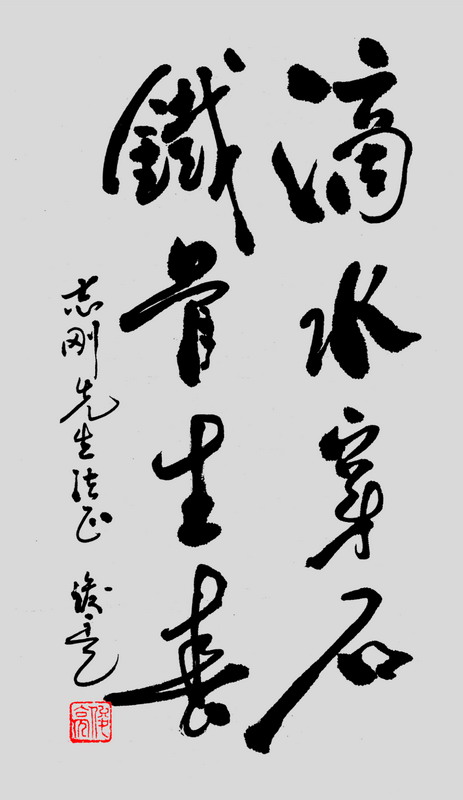 滴水穿石
鐵骨生春
志刚先生法正
俊亮